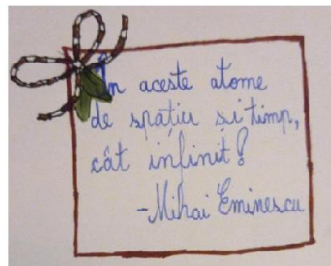 În aceste atome
de spațiu și timp,
cât infinit!
-Mihai Eminescu